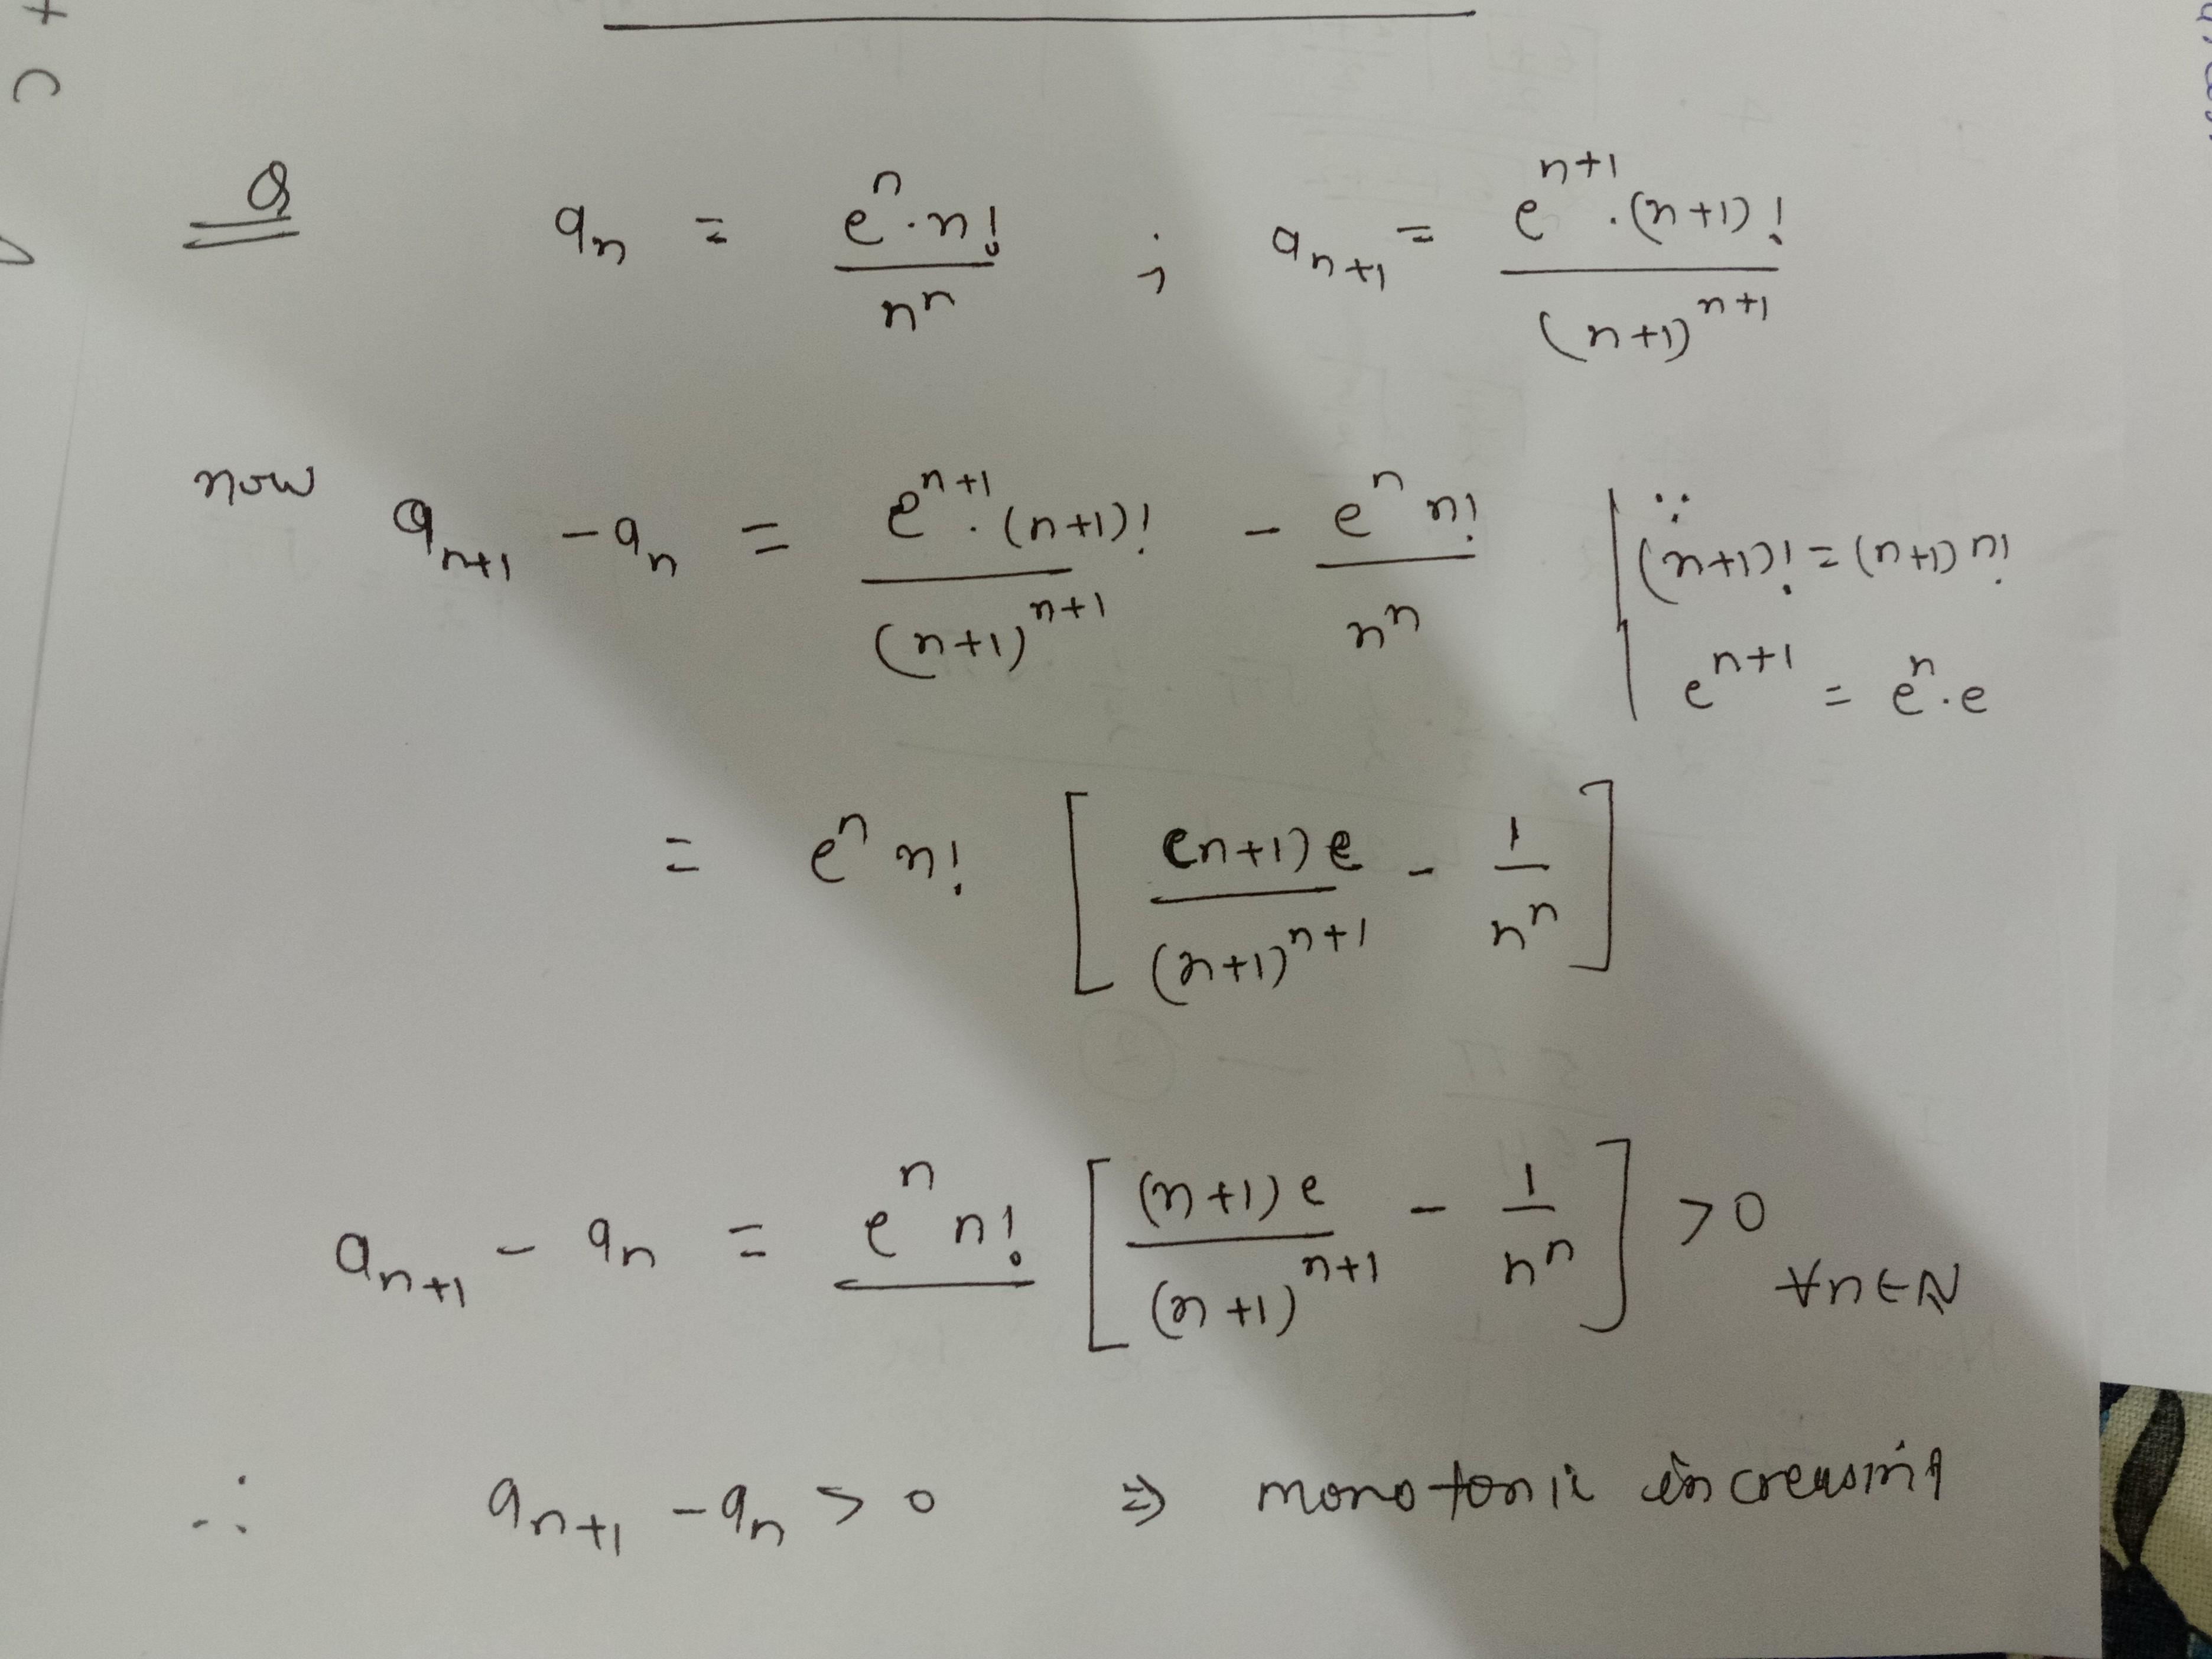 Q a_n = e^n · n! / n^n ; a_{n+1} = e^{n+1} · (n+1)! / (n+1)^{n+1}
now a_{n+1} - a_n = e^{n+1} · (n+1)! / (n+1)^{n+1} - e^n n! / n^n | ∵ (n+1)! = (n+1) n!
e^{n+1} = e^n · e
= e^n n! [ (n+1) e / (n+1)^{n+1} - 1 / n^n ]
a_{n+1} - a_n = e^n n! [ (n+1) e / (n+1)^{n+1} - 1 / n^n ] > 0 ∀ n ∈ N
∴ a_{n+1} - a_n > 0 ⇒ monotonic increasing